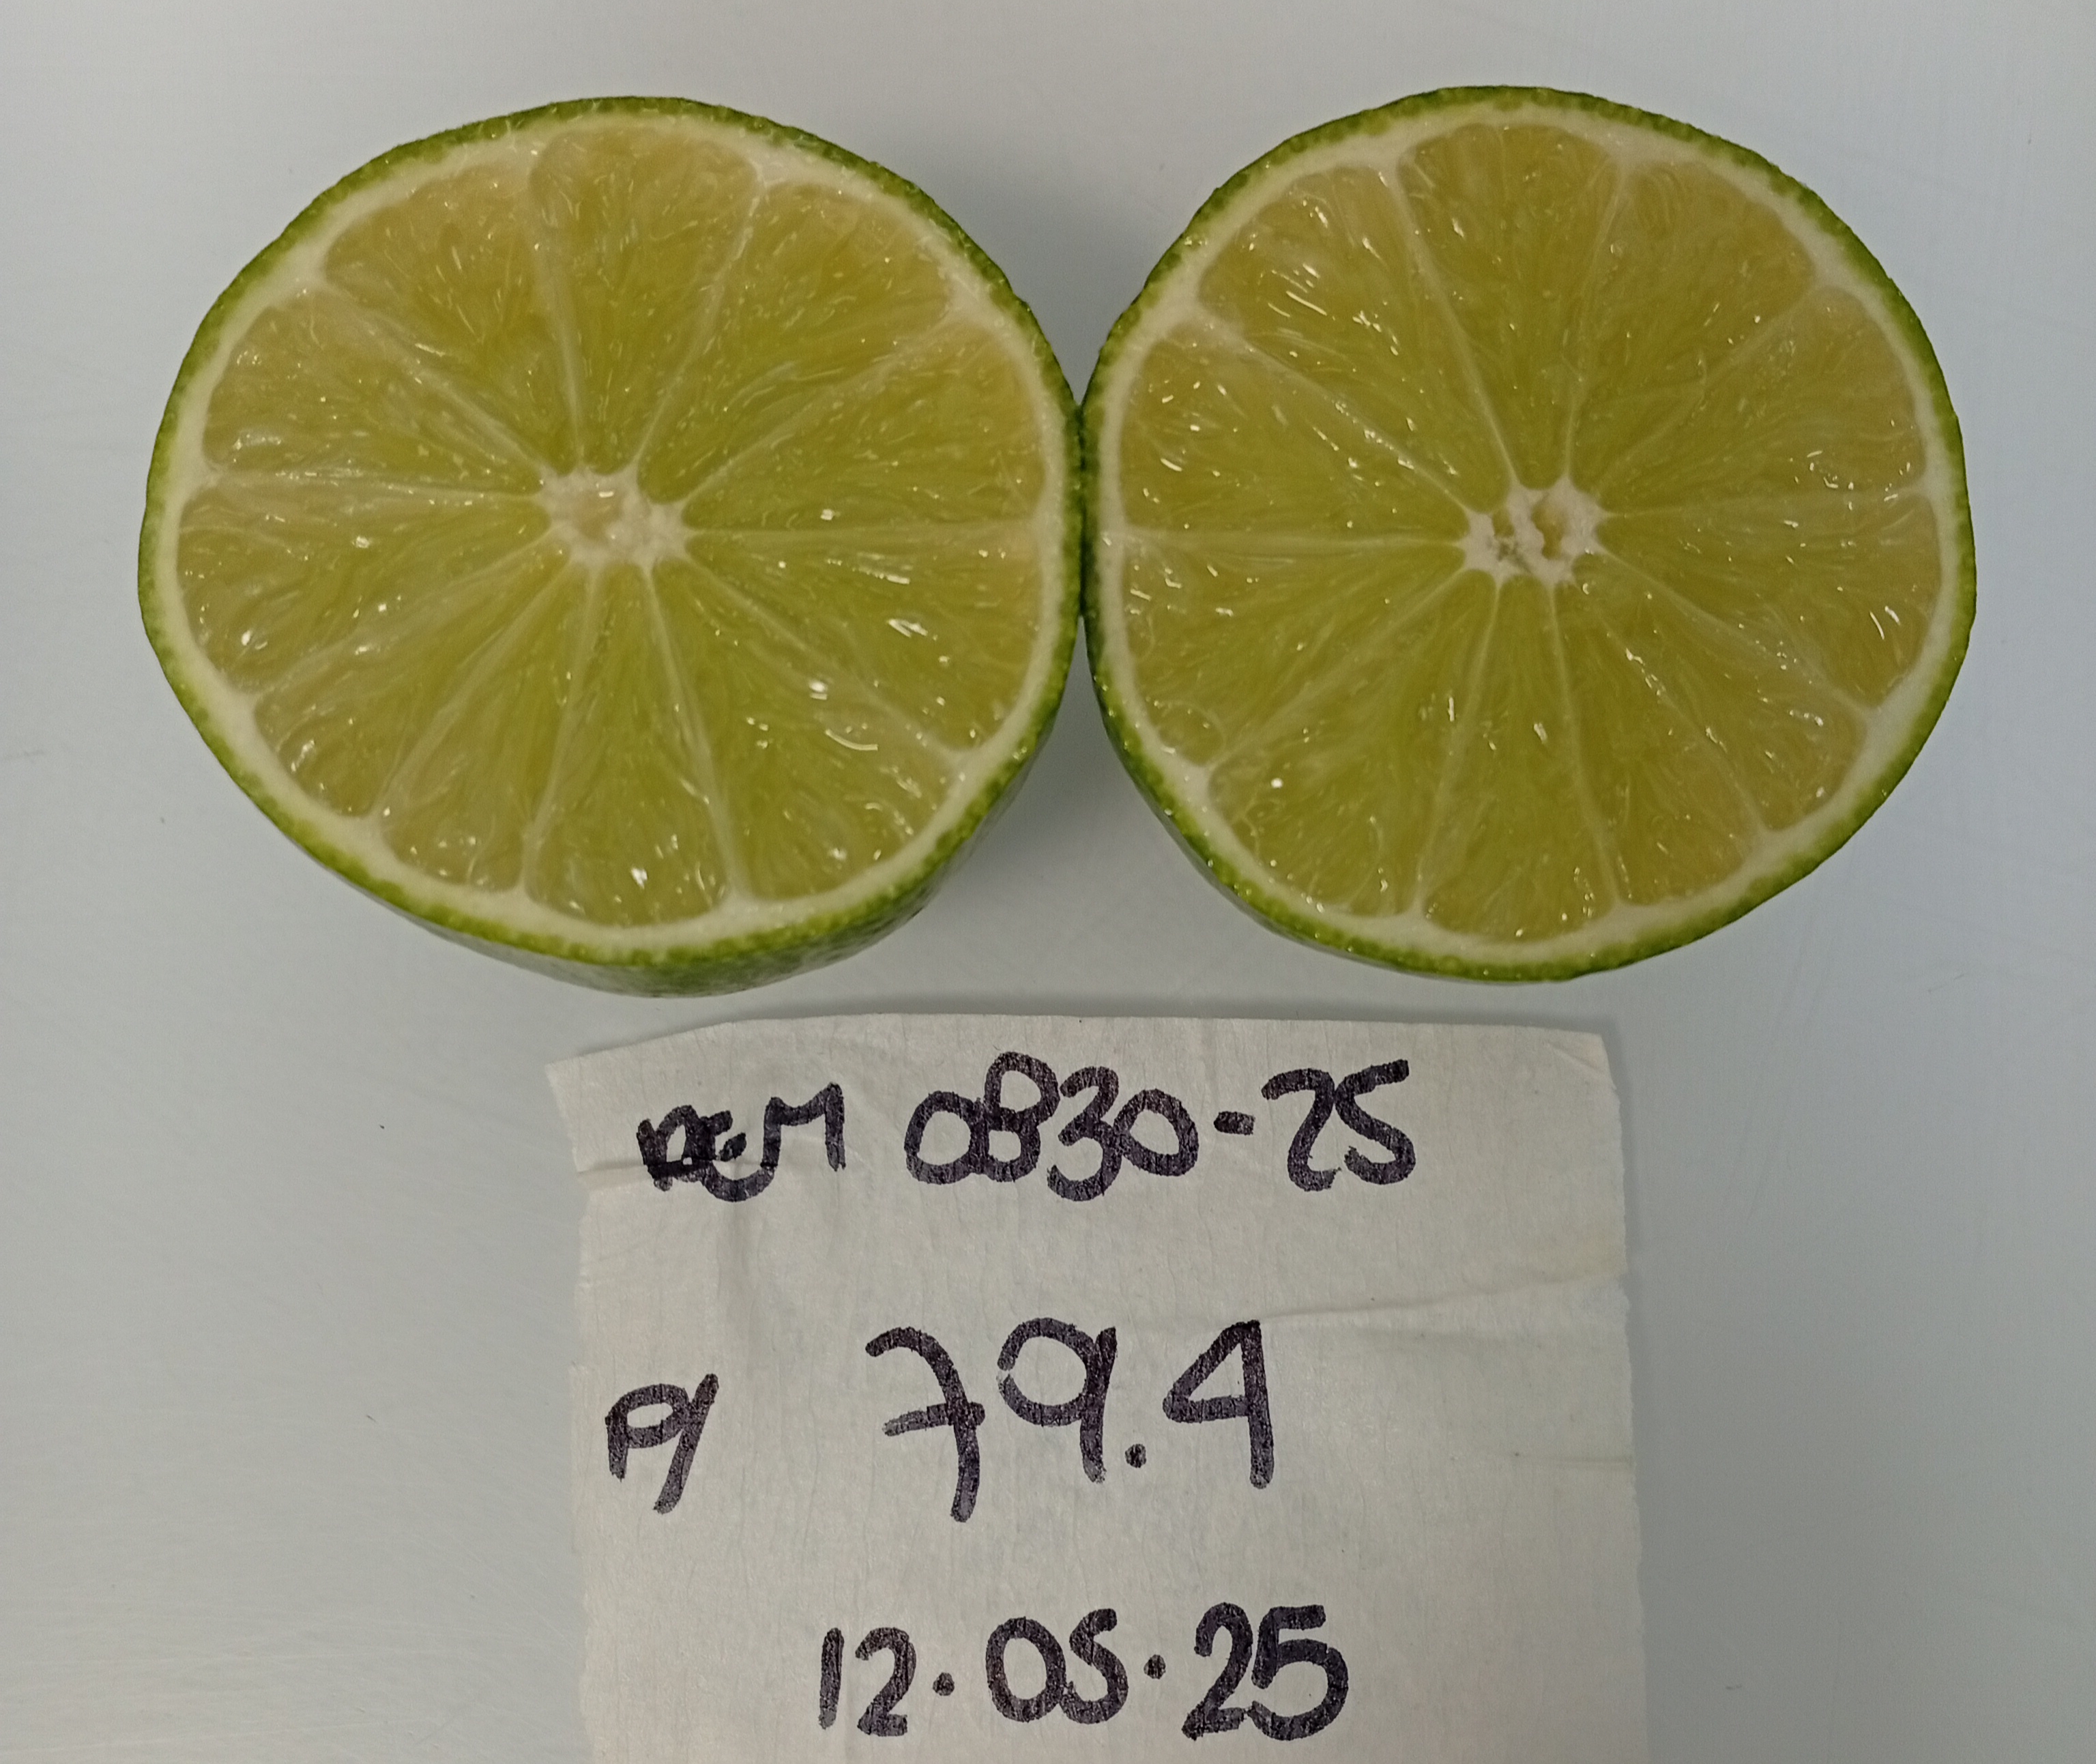 0830-25
P/ 79.4
12.05.25